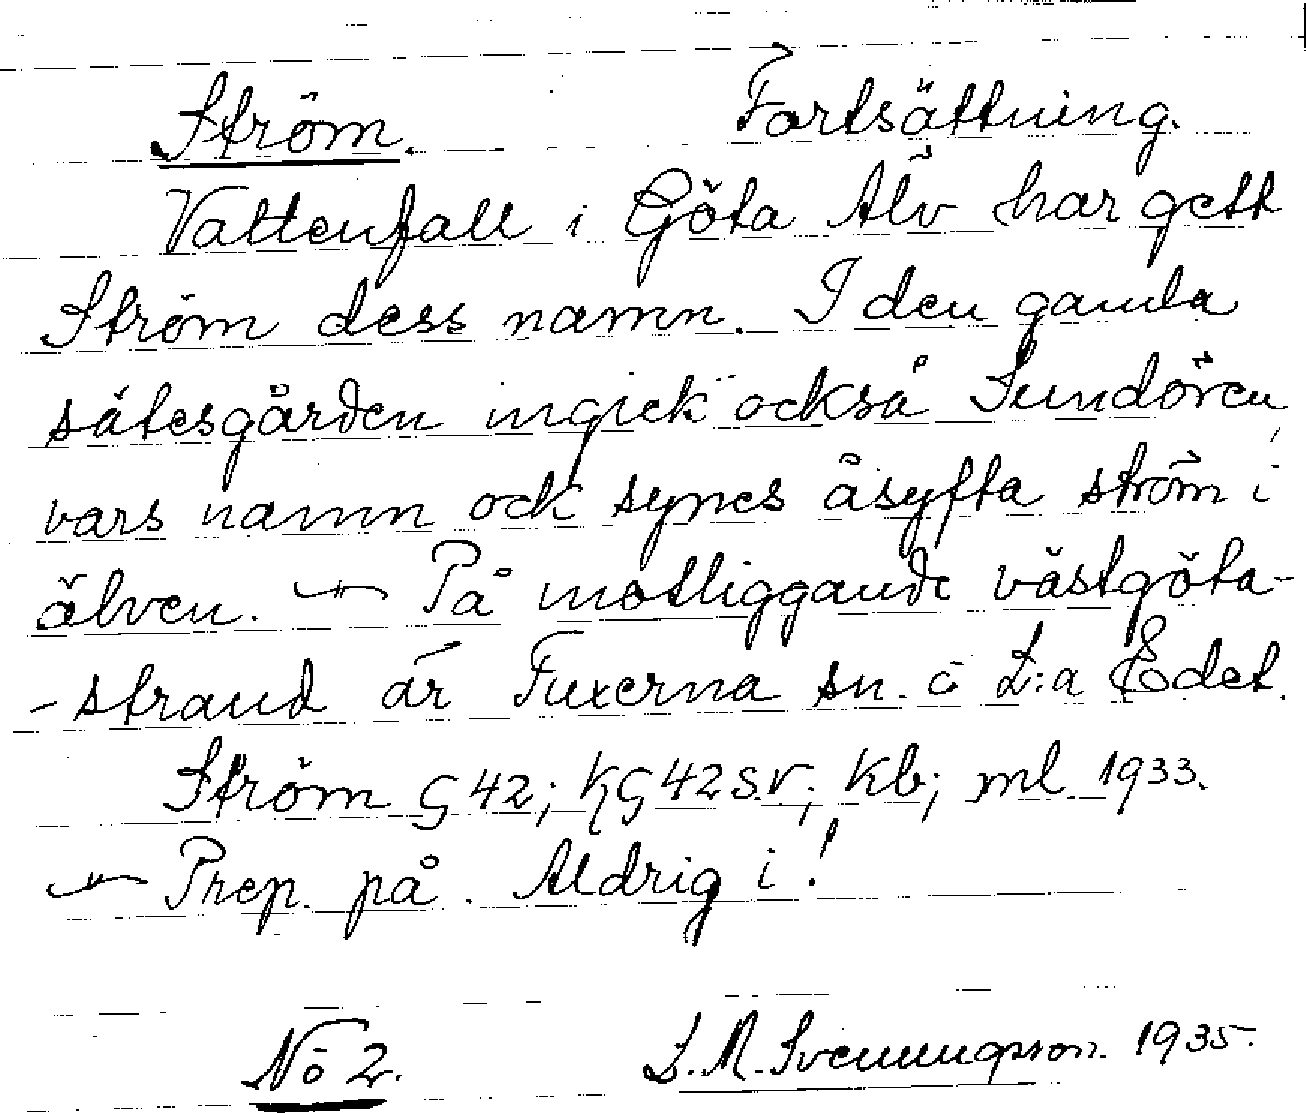 Ström. Fortsättning.
Vattenfall i Göta Älv har gett
Ström dess namn. I den gamla
sätesgården ingick också Sundören,
vars namn ock synes åsyfta ström i
älven. — På motliggande västgöta-
-strand är Fuxerna sn. o L:a Edet.
Ström G 42; KG 42 s.v.; Kb; ml 1933.
— Prep. på. Aldrig i!
No 2. L. M. Svenungsson. 1935.